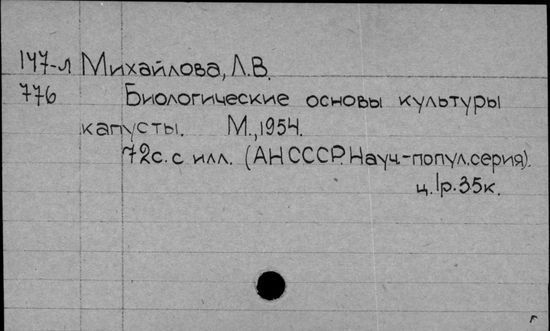 147-л Михайлова, Л.В.
776 Биологические основы культуры
капусты. М., 1954.
72с. с илл. (АН СССР. Науч.-попул. серия).
ц. 1р. 35к.
г